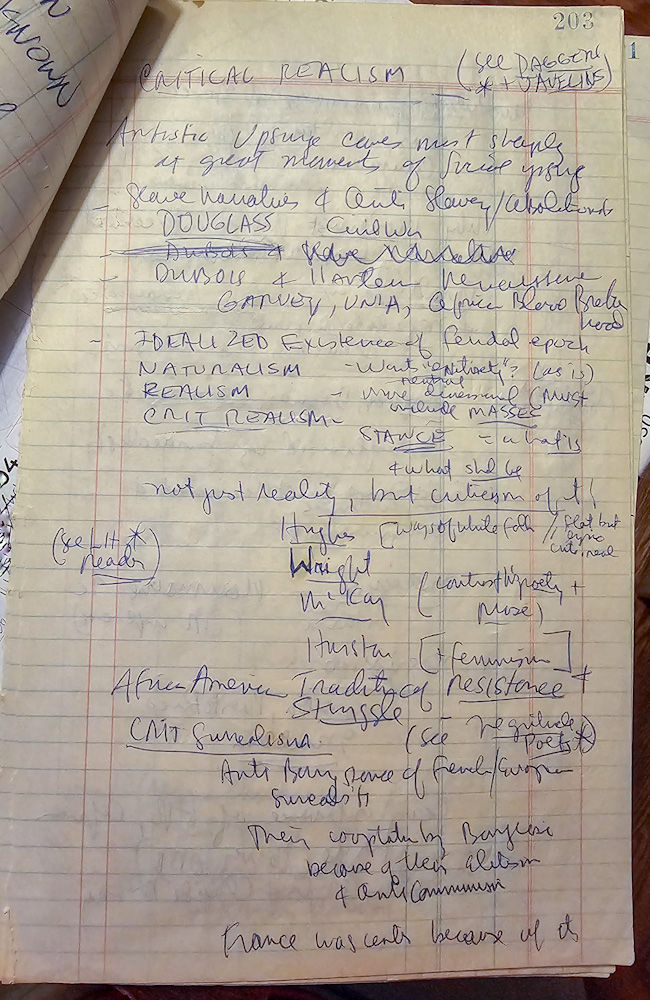 203
known
1
CRITICAL REALISM (see DAGGERS
* + JAVELINS)
Artistic Upsurge comes most sharply
at great moments of social upsurg
- Slave Narratives & Anti Slavery/Abolitionists
DOUGLASS Civil War
DuBois & Slave Narratives
- DUBOIS & Harlem Renaissance
GARVEY, UNIA, Africa Blood Brother
hood
- IDEALIZED Existence of feudal epoch
NATURALISM - Want " "? (as is)
neutral
REALISM - more dimensional (Must
include MASSES
CRIT REALISM -
STANCE - what is
& what shd be
not just reality, but criticism of it!
Hughes [Ways of White Folk // flat but
crit real
(see LH *
Reader)
Wright
McKay (contrast poetry +
prose)
Hurston [+ feminism]
African American Tradition of resistance +
Struggle
CRIT Surrealism (see Negritude
Poets *)
Anti Bourg stance of French/European
Surrealist
Their cooptation by Bourgeoisi
because of their elitism
& anti Communism
France was center because of its